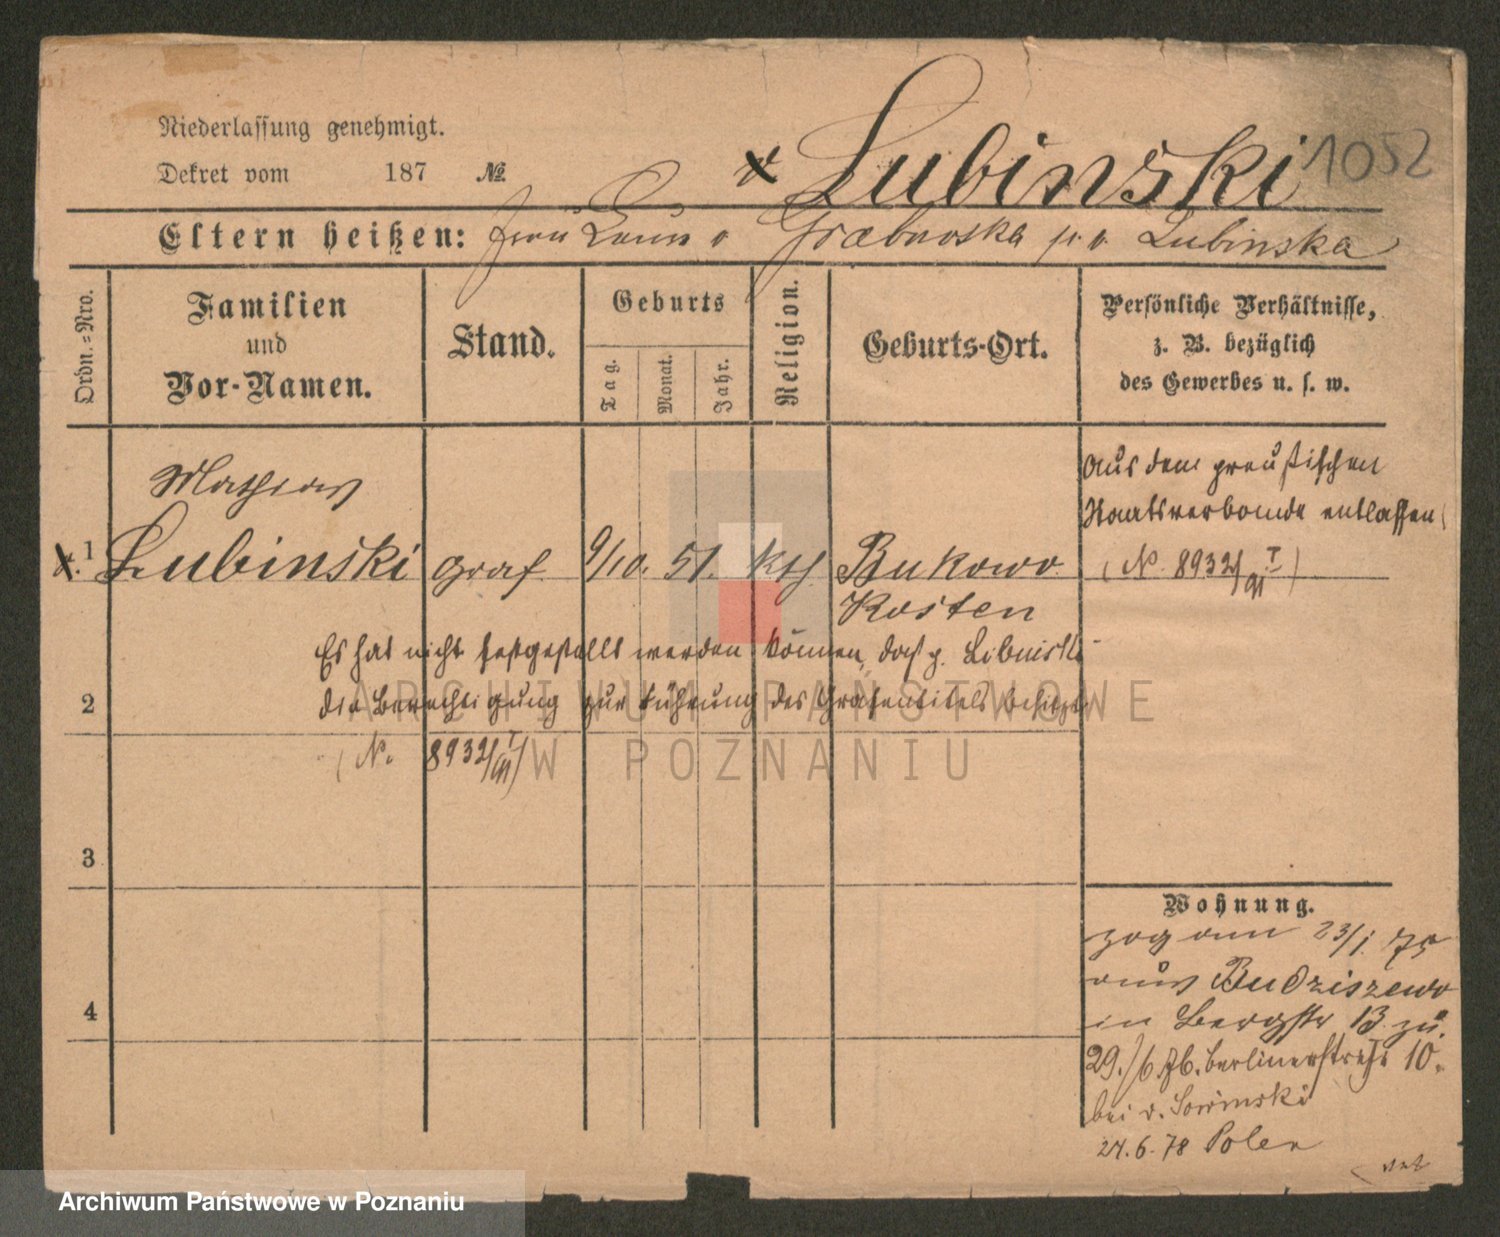 Niederlassung genehmigt.
Dekret vom 187 №
v Lubinski 1052
Eltern heißen: Grabowska Lubinska
Ordn.-Nro.
Familien und Vor-Namen.
Stand.
Geburts
Tag.
Monat.
Jahr.
Religion.
Geburts-Ort.
Persönliche Verhältnisse,
z. B. bezüglich
des Gewerbes u. s. w.
Mathias
v. 1 Lubinski Graf 9/10. 51. Kth Bukowo
Kosten
aus dem preußischen
Staatsverbande entlassen
(N. 8932/91 I)
Es hat nicht festgestellt werden können, daß p. Libinski
2 die Berechtigung zur Führung des Grafentitels besitzt
(N. 8932/91 I)
3
4
Wohnung.
zog am 23/1. 75
aus Budziszewo
in Bergstr 13 zu.
29./6 76. Berlinerstraße 10.
bei v.
24.6.78 Polen
ARCHIWUM PAŃSTWOWE
W POZNANIU
Archiwum Państwowe w Poznaniu